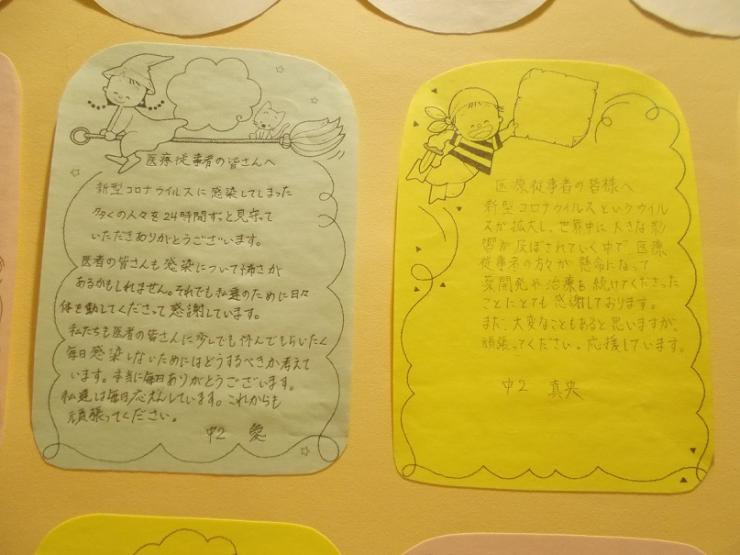 医療従事者の皆さんへ
新型コロナウイルスに感染してしまった
多くの人々を24時間ずっと見守って
いただきありがとうございます。
医者の皆さんも感染について怖さが
あるかもしれません。それでも私達のために日々
体を動してくださって感謝しています。
私たちも医者の皆さんに少しでも休んでもらいたく
毎日感染しないためにはどうするべきか考えて
います。本当に毎日ありがとうございます。
私達は毎日応えんしています。これからも
頑張ってください。
中2 愛
医療従事者の皆様へ
新型コロナウイルスというウイル
スが拡大し、世界中に大きな影
響が及ぼされていく中で、医療
従事者の方々が懸命になって
薬開発や治療を続けてくださった
ことにとても感謝しております。
まだ、大変なこともあると思いますが、
頑張ってください。応援しています。
中2 真央